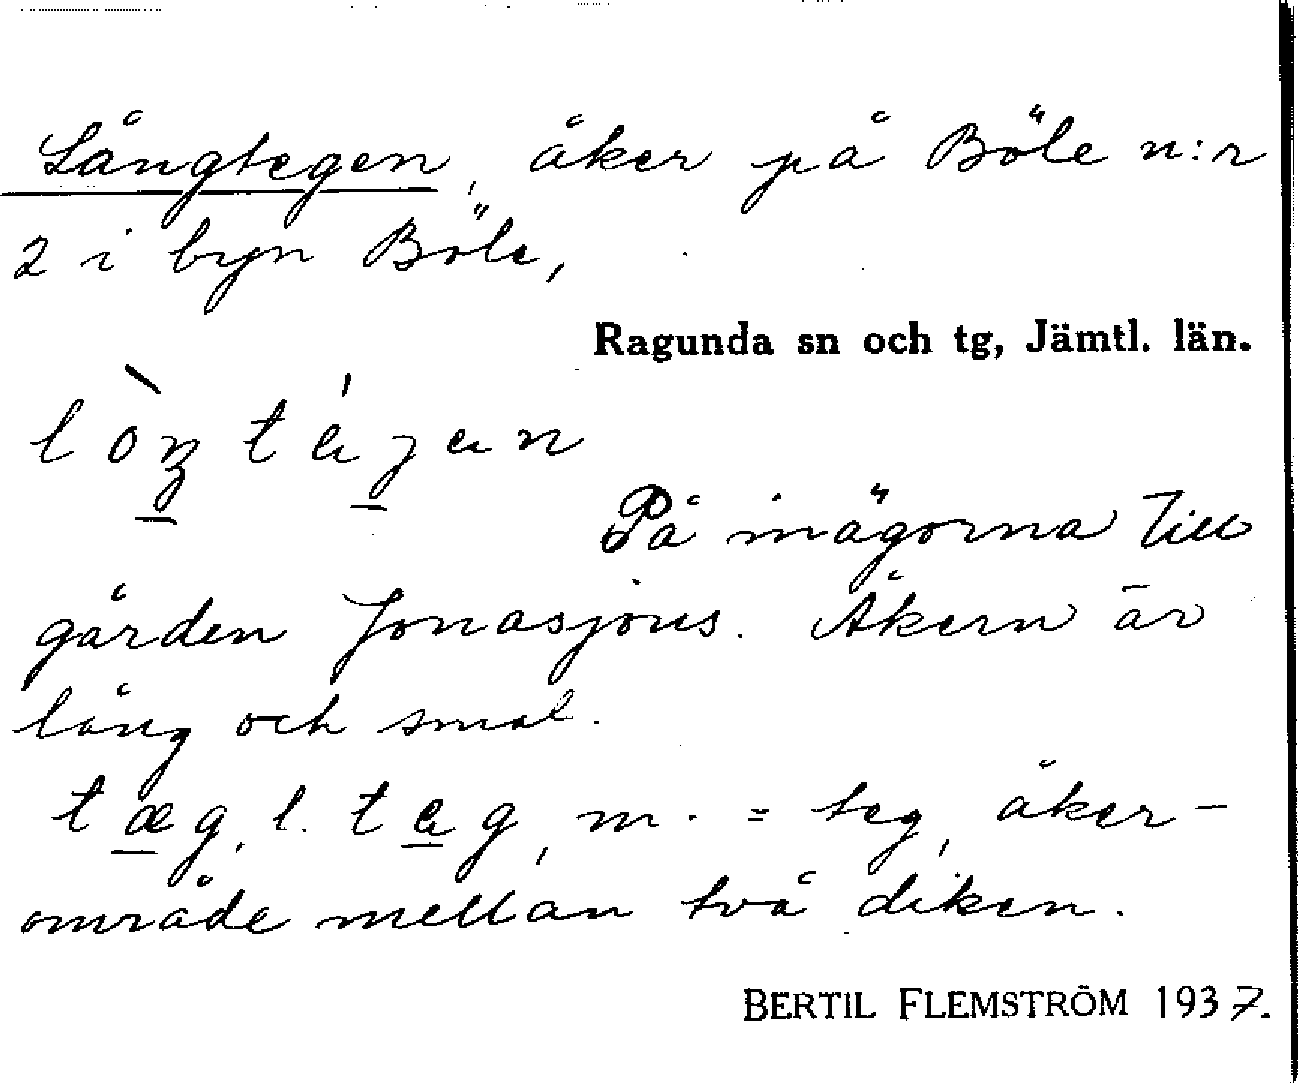 Långtegen, åker på Böle n:r
2 i byn Böle,
Ragunda sn och tg, Jämtl. län.
På inägorna till
gården Jonasjöns. Åkern är
lång och smal.
tæg, l. teg, m. = teg, åker-
område mellan två diken.
BERTIL FLEMSTRÖM 1937.